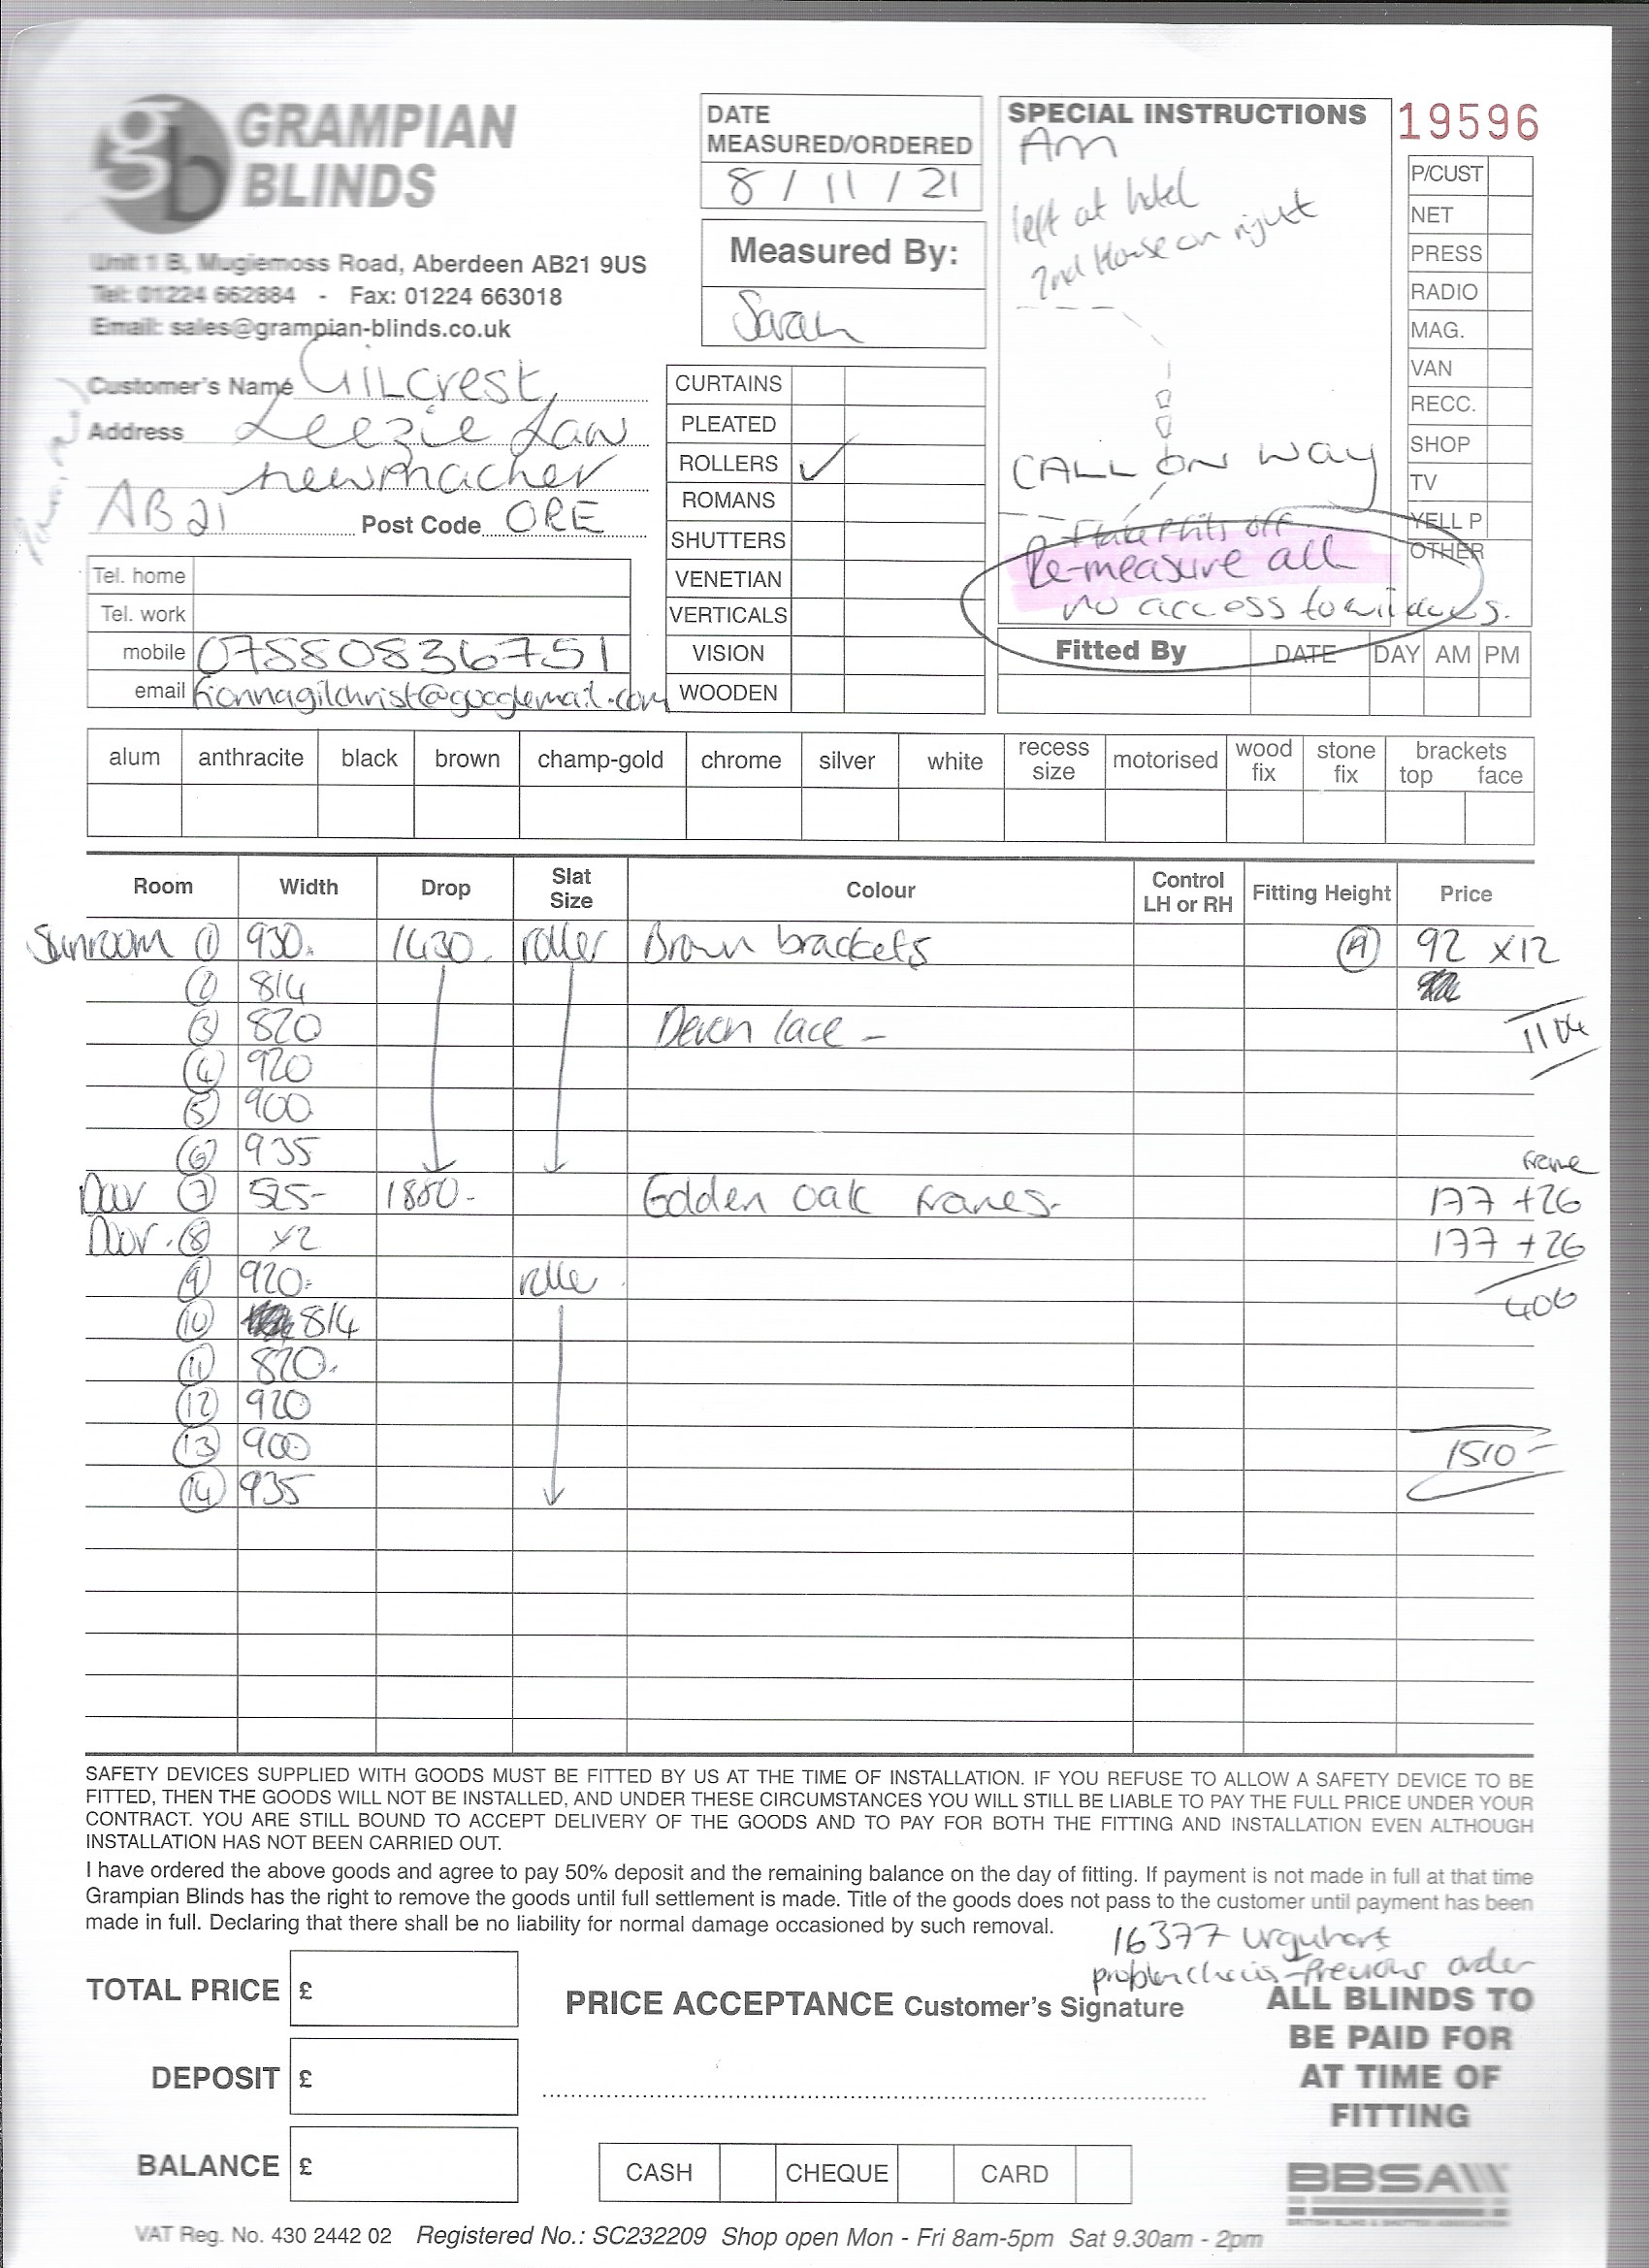 GRAMPIAN
BLINDS
Unit 1 B, Mugiemoss Road, Aberdeen AB21 9US
Tel: 01224 662884 - Fax: 01224 663018
Email: sales@grampian-blinds.co.uk
DATE
MEASURED/ORDERED
8 / 11 / 21
Measured By:
Sarah
SPECIAL INSTRUCTIONS
Am
left at hotel
2nd House on right
CALL ON WAY
Re-measure all
no access to windows.
19596
P/CUST
NET
PRESS
RADIO
MAG.
VAN
RECC.
SHOP
TV
YELL P
OTHER
Customer's Name Gilcrest,
Address Leezie Law
newmacher
AB21 Post Code ORE
Tel. home
Tel. work
mobile 07580836751
email fionnagilchrist@googlemail.com
CURTAINS
PLEATED
ROLLERS ✓
ROMANS
SHUTTERS
VENETIAN
VERTICALS
VISION
WOODEN
Fitted By DATE DAY AM PM
alum anthracite black brown champ-gold chrome silver white recess size motorised wood fix stone fix brackets top face
Room Width Drop Slat Size Colour Control LH or RH Fitting Height Price
Sunroom 1 930. 1430. roller Brown brackets A 92 x12
2 814
3 820 Devon lace - 1104
4 920
5 900
6 935
frame
Door 7 525- 1880- Golden oak frames. 177 +26
Door. 8 x2 177 +26
9 920. roller 406
10 814
11 820.
12 920
13 900 1510-
14 935
SAFETY DEVICES SUPPLIED WITH GOODS MUST BE FITTED BY US AT THE TIME OF INSTALLATION. IF YOU REFUSE TO ALLOW A SAFETY DEVICE TO BE
FITTED, THEN THE GOODS WILL NOT BE INSTALLED, AND UNDER THESE CIRCUMSTANCES YOU WILL STILL BE LIABLE TO PAY THE FULL PRICE UNDER YOUR
CONTRACT. YOU ARE STILL BOUND TO ACCEPT DELIVERY OF THE GOODS AND TO PAY FOR BOTH THE FITTING AND INSTALLATION EVEN ALTHOUGH
INSTALLATION HAS NOT BEEN CARRIED OUT.
I have ordered the above goods and agree to pay 50% deposit and the remaining balance on the day of fitting. If payment is not made in full at that time
Grampian Blinds has the right to remove the goods until full settlement is made. Title of the goods does not pass to the customer until payment has been
made in full. Declaring that there shall be no liability for normal damage occasioned by such removal.
16377 Urquhart
problem - Previous order
TOTAL PRICE £
PRICE ACCEPTANCE Customer's Signature
ALL BLINDS TO
BE PAID FOR
AT TIME OF
FITTING
DEPOSIT £
BALANCE £
CASH CHEQUE CARD
BBSA
VAT Reg. No. 430 2442 02 Registered No.: SC232209 Shop open Mon - Fri 8am-5pm Sat 9.30am - 2pm